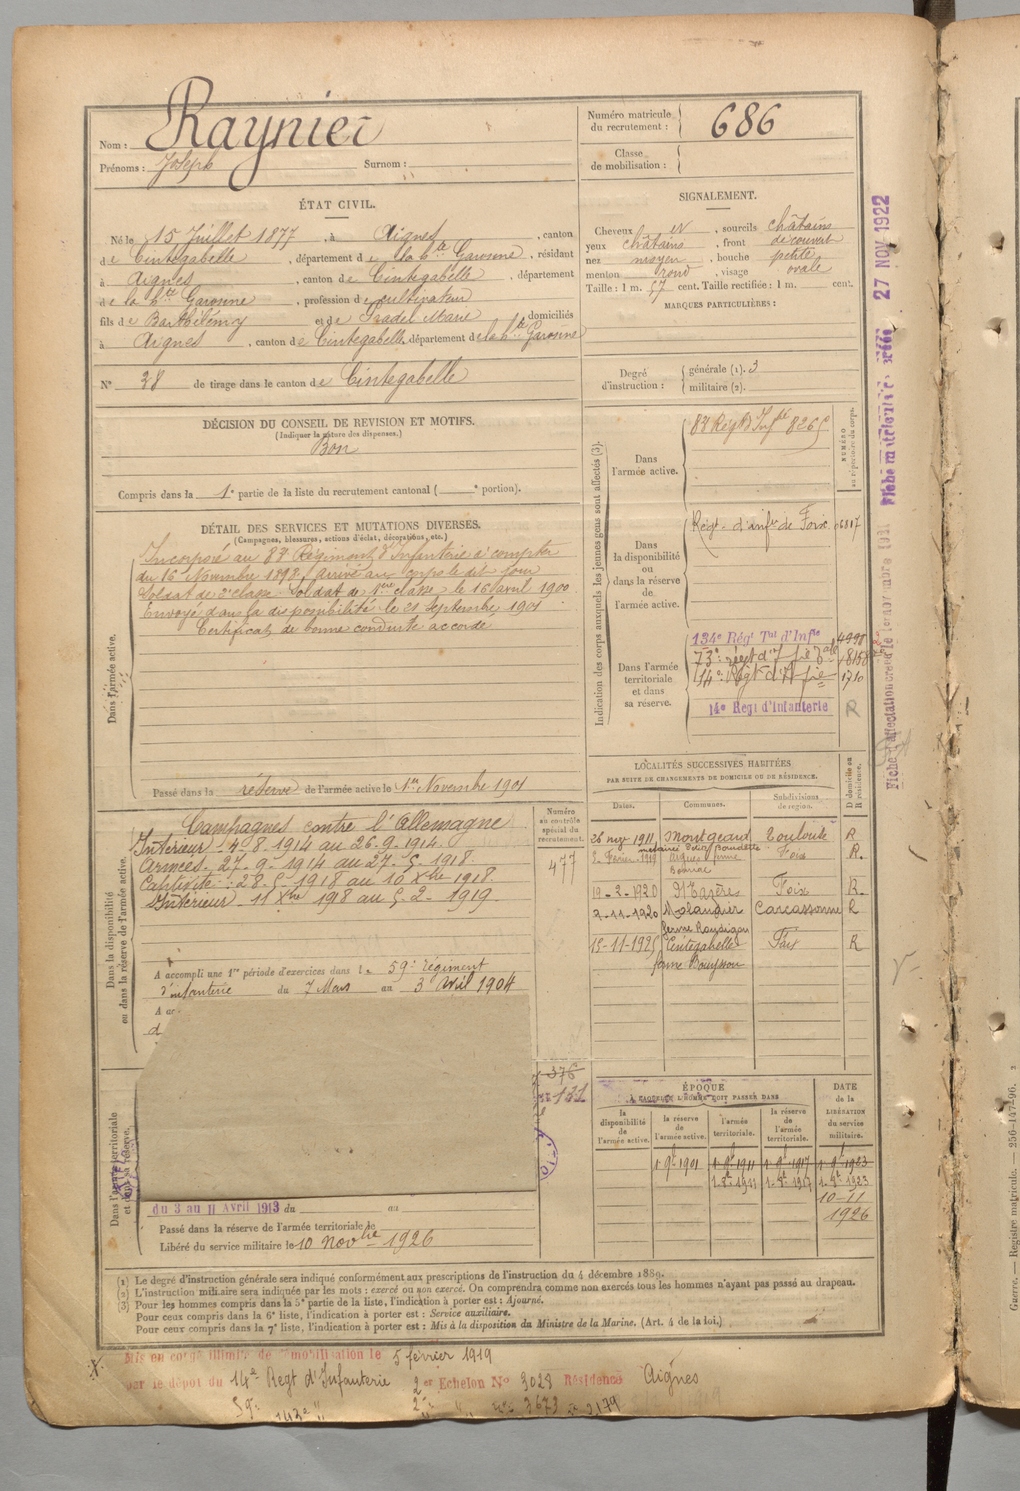 Nom : Raynier
Prénoms : Joseph Surnom :
Numéro matricule du recrutement : 686
Classe de mobilisation :
ÉTAT CIVIL.
Né le 15 Juillet 1877, à Aignes, canton
de Cintegabelle, département de la hte Garonne, résidant
à Aignes, canton de Cintegabelle, département
de la hte Garonne, profession de cultivateur
fils de Barthélémy et de Pradel Marie, domiciliés
à Aignes, canton de Cintegabelle, département de la hte Garonne
N° 38 de tirage dans le canton de Cintegabelle
SIGNALEMENT.
Cheveux et, sourcils châtains
yeux châtains, front découvert
nez moyen, bouche petite
menton rond, visage ovale
Taille : 1 m. 57 cent. Taille rectifiée : 1 m. cent.
MARQUES PARTICULIÈRES :
Degré d'instruction : générale (1). 3
militaire (2).
DÉCISION DU CONSEIL DE REVISION ET MOTIFS.
(Indiquer la nature des dispenses.)
Bon
Compris dans la 1e partie de la liste du recrutement cantonal ( e portion).
DÉTAIL DES SERVICES ET MUTATIONS DIVERSES.
(Campagnes, blessures, actions d'éclat, décorations, etc.)
Dans l'armée active.
Incorporé au 83e Régiment d'Infanterie à compter
du 16 Novembre 1898. Arrivé au corps le dit jour
Soldat de 2e classe. Soldat de 1ère classe le 16 avril 1900
Envoyé dans la disponibilité le 21 Septembre 1901
Certificat de bonne conduite accordé
Passé dans la réserve de l'armée active le 1er Novembre 1901
Indication des corps auxquels les jeunes gens sont affectés (3).
NUMÉRO au répertoire du corps.
Dans l'armée active.
83 Régt d'Infie 8265
Dans la disponibilité ou dans la réserve de l'armée active.
Régt d'infie de Foix 06817
Dans l'armée territoriale et dans sa réserve.
134e Régt Tal d'Infie 4998
73e régt d'Infie 18158
14e Régt d'Infie 1710
14e Regt d'Infanterie R
Dans la disponibilité ou dans la réserve de l'armée active.
Campagnes contre l'Allemagne
Intérieur 4.8.1914 au 26.9.1914.
Armées. 27.9.1914 au 27.5.1918.
Captivité : 28.5.1918 au 10 Xbre 1918.
Intérieur 11 Xbre 198 au 5.2.1919.
A accompli une 1re période d'exercices dans le 59e régiment
d'infanterie du 7 Mars au 3 avril 1904
A ac
d
Numéro au contrôle spécial du recrutement.
477
376
LOCALITÉS SUCCESSIVES HABITÉES
PAR SUITE DE CHANGEMENTS DE DOMICILE OU DE RÉSIDENCE.
Dates. Communes. Subdivisions de région. D domicile ou R résidence.
26 nov 1911 Montgeard Toulouse R
2 Février 1919 Aignes Foix R.
19-2-1920 Mazères Foix R.
2-11-1920 Molandier Carcassonne R
13-11-1925 Cintegabelle Foix R
Dans l'armée territoriale et dans sa réserve.
du 3 au 11 Avril 1913 du au
Passé dans la réserve de l'armée territoriale le
Libéré du service militaire le 10 Novbre 1926
ÉPOQUE
À LAQUELLE L'HOMME DOIT PASSER DANS
la disponibilité de l'armée active.
la réserve de l'armée active.
l'armée territoriale.
la réserve de l'armée territoriale.
DATE de la LIBÉRATION du service militaire.
1-9e 1901 1-9e 1911 1-9e 1917 1-9e 1923
10-11
1926
(1) Le degré d'instruction générale sera indiqué conformément aux prescriptions de l'instruction du 4 décembre 1889.
(2) L'instruction militaire sera indiquée par les mots : exercé ou non exercé. On comprendra comme non exercés tous les hommes n'ayant pas passé au drapeau.
(3) Pour les hommes compris dans la 5e partie de la liste, l'indication à porter est : Ajourné.
Pour ceux compris dans la 6e liste, l'indication à porter est : Service auxiliaire.
Pour ceux compris dans la 7e liste, l'indication à porter est : Mis à la disposition du Ministre de la Marine. (Art. 4 de la loi.)
Mis en congé illimité de démobilisation le 5 février 1919
par le dépôt du 14e Regt d'Infanterie 2e Echelon N° 3028 Résidence Aignes
59e 143e 3673 3179
27 NOV 1922
Guerre. — Registre matricule. — 256-147-96.